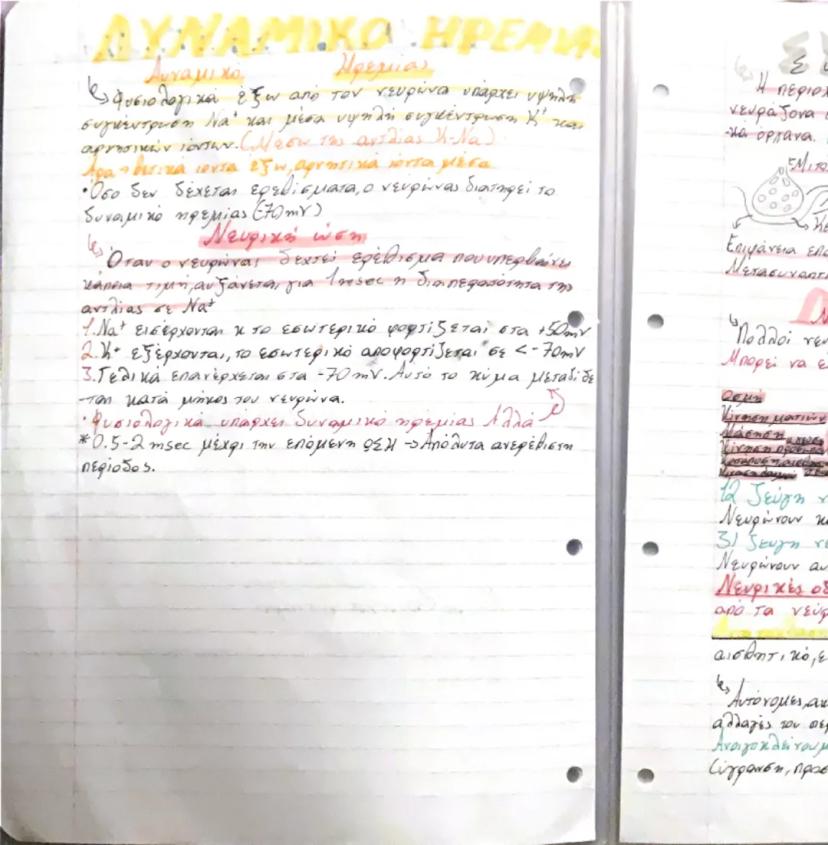 ΔΥΝΑΜΙΚΟ ΗΡΕΜΙΑΣ
Δυναμικό Ηρεμίας
Φυσιολογικά έξω από τον νευρώνα υπάρχει υψηλή
συγκέντρωση Na⁺ και μέσα υψηλή συγκέντρωση K⁺ και
αρνητικών ιόντων. (Μέσω της αντλίας K-Na)
Άρα θετικά ιόντα έξω, αρνητικά ιόντα μέσα
•Όσο δεν δέχεται ερεθίσματα, ο νευρώνας διατηρεί το
δυναμικό ηρεμίας (-70mV)
Νευρική ώση
Όταν ο νευρώνας δεχτεί ερέθισμα που υπερβαίνει
κάποια τιμή, αυξάνεται για 1msec η διαπερατότητα της
αντλίας σε Na⁺
1. Na⁺ εισέρχονται κ το εσωτερικό φορτίζεται στα +50mV
2. K⁺ εξέρχονται, το εσωτερικό αποφορτίζεται σε <-70mV
3. Τελικά επανέρχεται στα -70mV. Αυτό το κύμα μεταδίδε
-ται κατά μήκος του νευρώνα.
•Φυσιολογικά υπάρχει δυναμικό ηρεμίας Αλλά
*0.5-2 msec μέχρι την επόμενη ΩΣΗ -> Απόλυτα ανερέθιστη
περίοδος.
Η περιοχ
νευράξονα
-κά όργανα.
Μιτο
Επιφάνεια επα
Μετασυναπτ
Πολλοί νευ
Μπορεί να ε
Οσμή
Κίνηση ματιών
Μάσηση
12 ζεύγη ν
Νευρώνουν κ
31 ζεύγη νε
Νευρώνουν αυ
Νευρικές οδ
από τα νεύρ
αισθητικό, ε
Αυτόνομες, ακ
αλλαγές του περ
Ανοιγοκλείνουμ